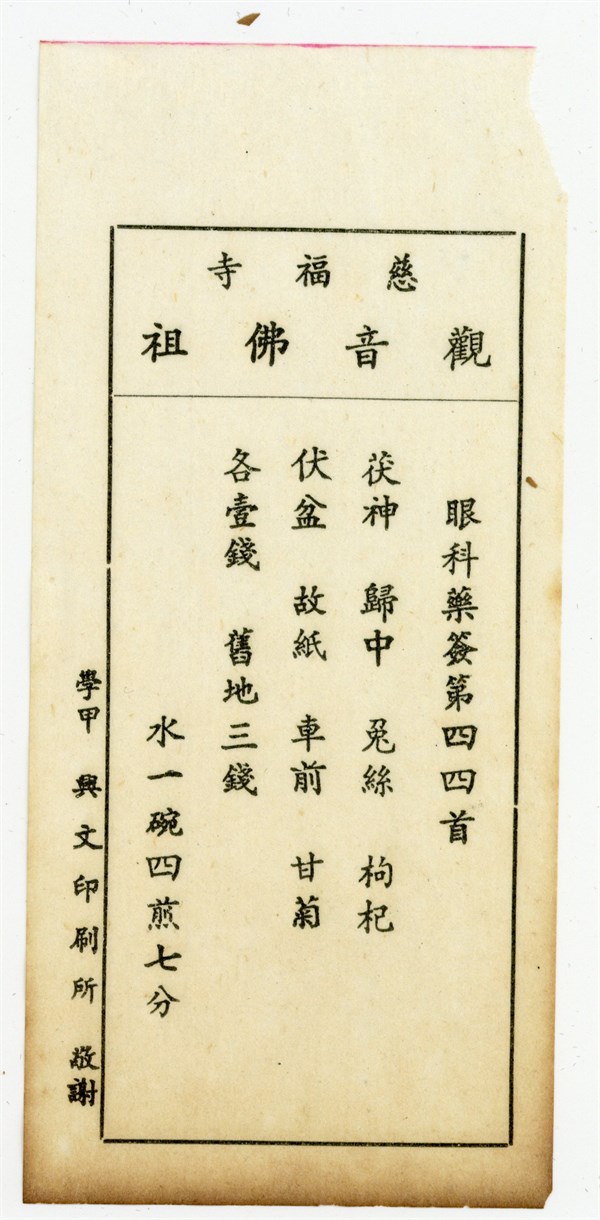 慈福寺
觀音佛祖
眼科藥簽第四四首
茯神 歸中 兎絲 枸杞
伏盆 故紙 車前 甘菊
各壹錢 舊地三錢
水一碗四煎七分
學甲 興文印刷所 敬謝